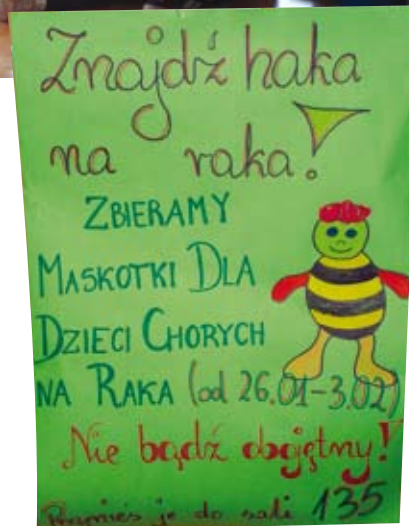 Znajdź haka
na raka!
ZBIERAMY
MASKOTKI DLA
DZIECI CHORYCH
NA RAKA (od 26.01-3.02)
Nie bądź obojętny!
Przynieś je do sali 135